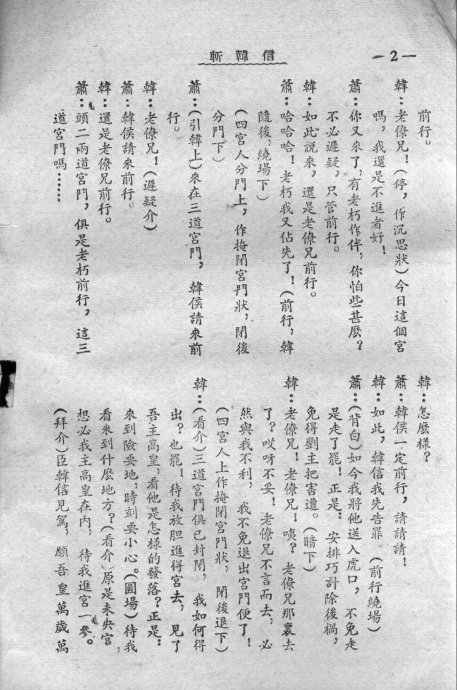 斬韓信
—2—
前行。
韓：老僚兄！(停，作沉思狀)今日這個宮
嗎，我還是不進者好！
蕭：你又來了，有老朽作伴，你怕些甚麼？
不必遲疑，只管前行。
韓：如此說來，還是老僚兄前行。
蕭：哈哈哈！老朽我又佔先了！(前行，韓
隨後，繞場下)
(四宮人分門上，作掩閉宮門狀，閉後
分門下)
蕭：(引韓上)來在三道宮門，韓侯請來前
行。
韓：老僚兄！(遲疑介)
蕭：韓侯請來前行。
韓：還是老僚兄前行。
蕭：頭二兩道宮門，俱是老朽前行，這三
道宮門嗎……
韓：怎麼樣？
蕭：韓侯一定前行，請請請！
韓：如此，韓信我先告罪。(前行繞場)
蕭：(背白)如今我將他送入虎口，不免走
是走了罷！正是：安排巧計除後禍，
免得劉主把害遭。(暗下)
韓：老僚兄！老僚兄！咦？老僚兄那裏去
了？哎呀不妥！老僚兄不言而去，必
然與我不利，我不免退出宮門便了！
(四宮人上作掩閉宮門狀，閉後退下)
韓：(看介)三道宮門俱已封閉，我如何得
出？也罷！待我放胆進得宮去，見了
吾主高皇，看他是怎樣的發落？正是：
來到險要地，時刻要小心。(圓場)待我
看來到什麼地方？(看介)原是未央宮，
想必我主高皇在內，待我進宮一參。
(拜介)臣韓信見駕，願吾皇萬歲萬